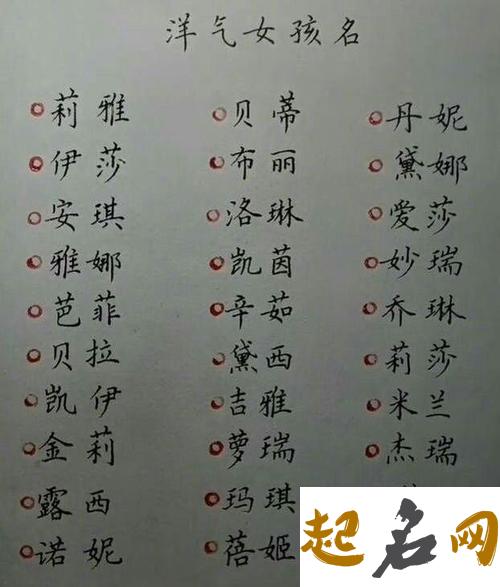 洋气女孩名
莉雅 贝蒂 丹妮
伊莎 布丽 黛娜
安琪 洛琳 爱莎
雅娜 凯茵 妙瑞
芭菲 辛茹 乔琳
贝拉 黛西 莉莎
凯伊 吉雅 米兰
金莉 萝瑞 杰瑞
露西 玛琪
诺妮 蓓姬
起名网